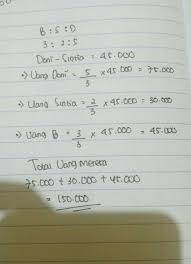 B : S : D
3 : 2 : 5
Doni - Sintia = 45.000
→) Uang Doni = 5/3 × 45.000 = 75.000
→) Uang Sintia = 2/3 × 45.000 = 30.000
→) Uang B = 3/3 × 45.000 = 45.000
Total Uang mereka
75.000 + 30.000 + 45.000
= 150.000